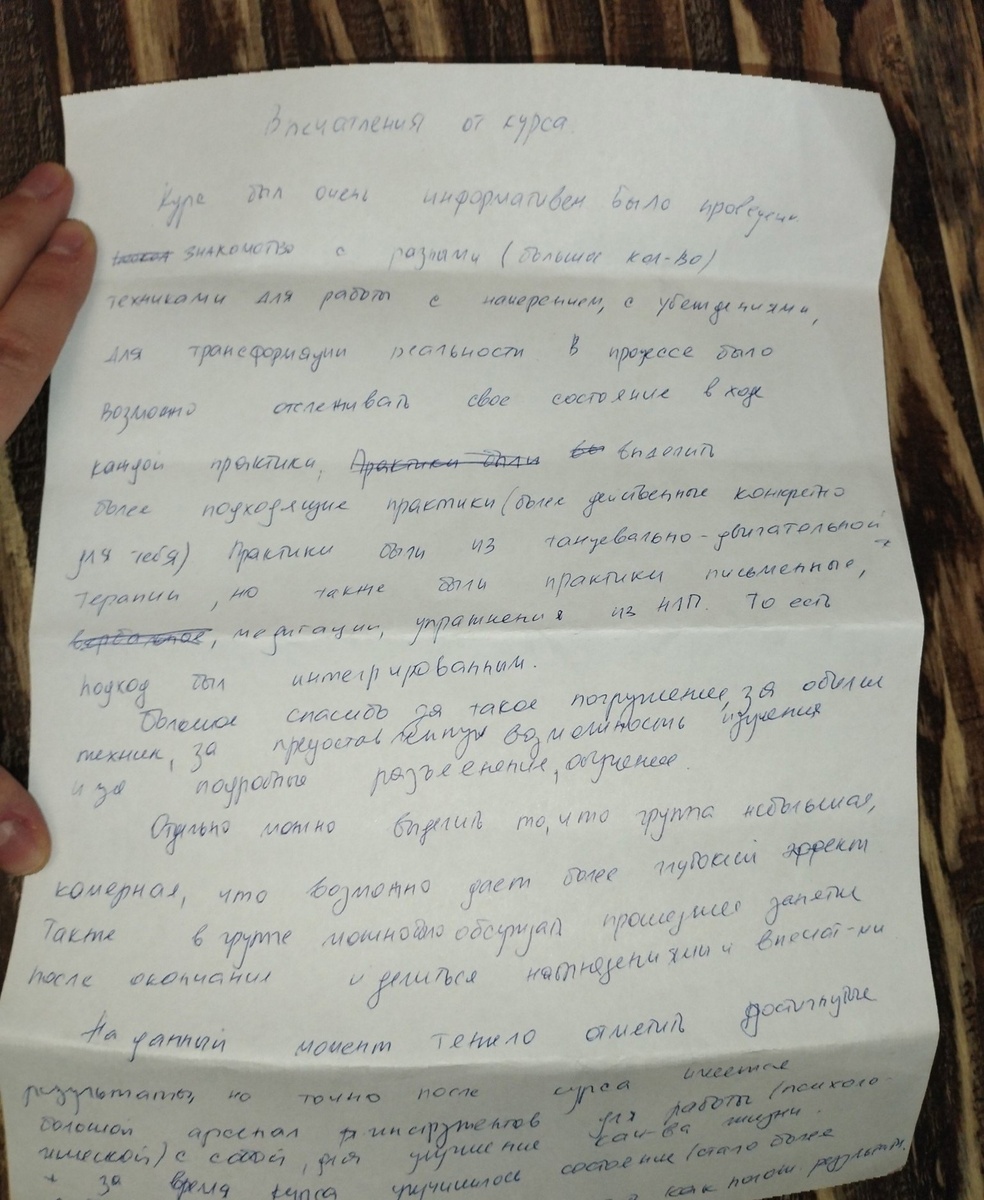 Впечатления от курса.
Курс был очень информативен было проведен
знакомство с разными (большое кол-во)
техниками для работы с намерением, с убеждениями,
для трансформации реальности В процессе было
возможно отслеживать свое состояние в ходе
каждой практики, Практики были выделить
более подходящие практики (более действенные конкретно
для тебя) Практики были из танцевально-двигательной
терапии, но также были практики письменные,
вербальные, медитации, упражнения из НЛП. То есть
подход был интегрированным.
Большое спасибо за такое погружение, за обилие
техник, за предоставленную возможность изучения
и за подробные разъяснение, обучение.
Отдельно можно выделить то, что группа небольшая,
камерная, что возможно дает более глубокий эффект
Также в группе можно было обсуждать прошедшее занятие
после окончания и делиться наблюдениями и впечат-ми
На данный момент тяжело отметить достигнутые
результаты, но точно после курса имеется
большой арсенал инструментов для работы (психоло-
гической) с собой, для улучшение кач-ва жизни.
+ за время курса улучшилось состояние (стало более
как погош. результат,